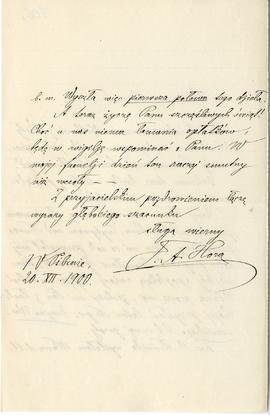 b. m. Wyszła więc pierwsza połowa tego dzieła.
A teraz życzę Panu szczęśliwych świąt!
Choć u nas niema łamania opłatków,
będę w wigilję wspominać o Panu. W
mojej familji dzień ten raczej smutny
niż wesoły —
Z przyjacielskim pozdrowieniem łączę
wyrazy głębokiego szacunku
sługa wierny
F. A. Hora
W Pilznie,
20. XII. 1900.